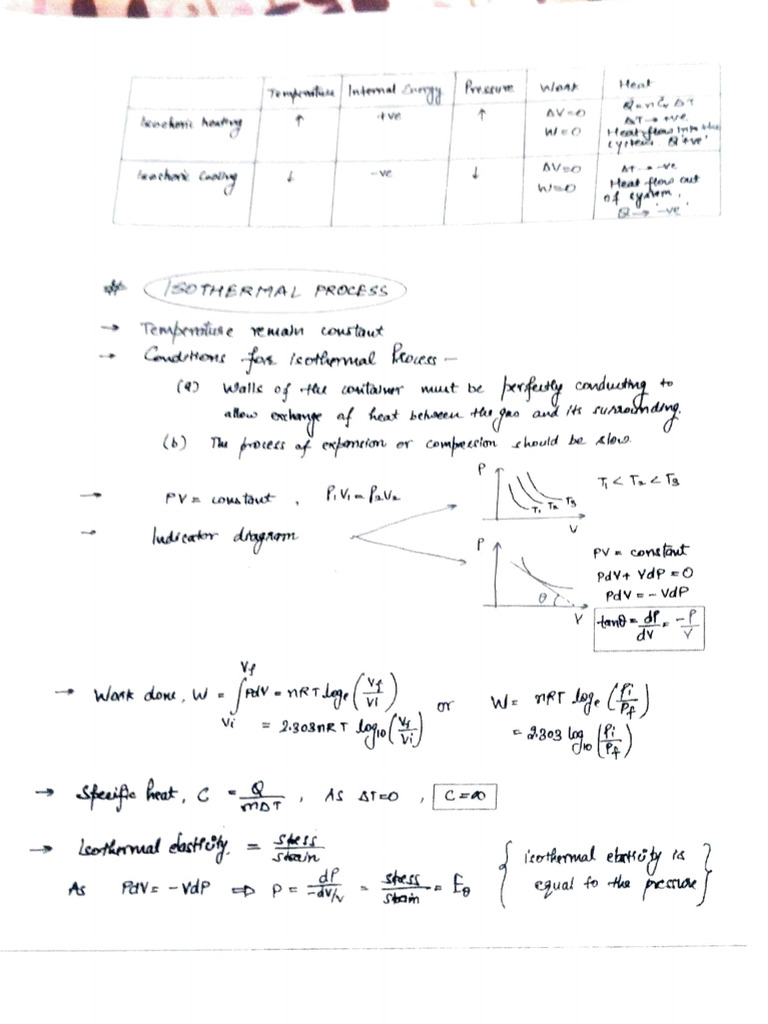 Temperature Internal Energy Pressure Work Heat
Isochoric heating ↑ +ve ↑ ΔV=0 Q=nCvΔT
W=0 ΔT→+ve
Heat flow into the
system. Q +ve
Isochoric Cooling ↓ -ve ↓ ΔV=0 ΔT→-ve
W=0 Heat flow out
of system.
Q→ -ve
* ISOTHERMAL PROCESS
→ Temperature remain constant
→ Conditions for isothermal Process —
(a) Walls of the container must be perfectly conducting to
allow exchange of heat between the gas and its surrounding.
(b) The process of expansion or compression should be slow.
→ PV = constant , P1V1 = P2V2
→ Indicator diagram
P T1 T2 T3 V
T1 < T2 < T3
P θ V
PV = constant
PdV + VdP = 0
PdV = - VdP
tanθ = dP/dV = -P/V
→ Work done, W = ∫ Vi Vf PdV = nRT loge (Vf/Vi) or W = nRT loge (Pi/Pf)
= 2.303nRT log10 (Vf/Vi) = 2.303 log10 (Pi/Pf)
→ Specific heat, C = Q/mΔT , As ΔT=0 , C = ∞
→ Isothermal elasticity. = stress/strain { isothermal elasticity is
As PdV = -VdP ⇒ P = dP/-dV/V = stress/strain = Eθ equal to the pressure }